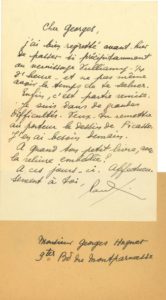 Cher Georges,
j'ai bien regretté avant hier
de passer si précipitamment
au vernissage
d'heure - et ne pas même
avoir le temps de te saluer.
Enfin, c'est partie remise.
Je suis dans de grandes
difficultés. Peux-tu remettre
au porteur le dessin de Picasso
J'en ai besoin demain.
A quand ton petit livre, sur
la reliure
A ces jours-ci. Affectueu-
sement à toi,
Monsieur Georges Hugnet
Bd du Montparnasse